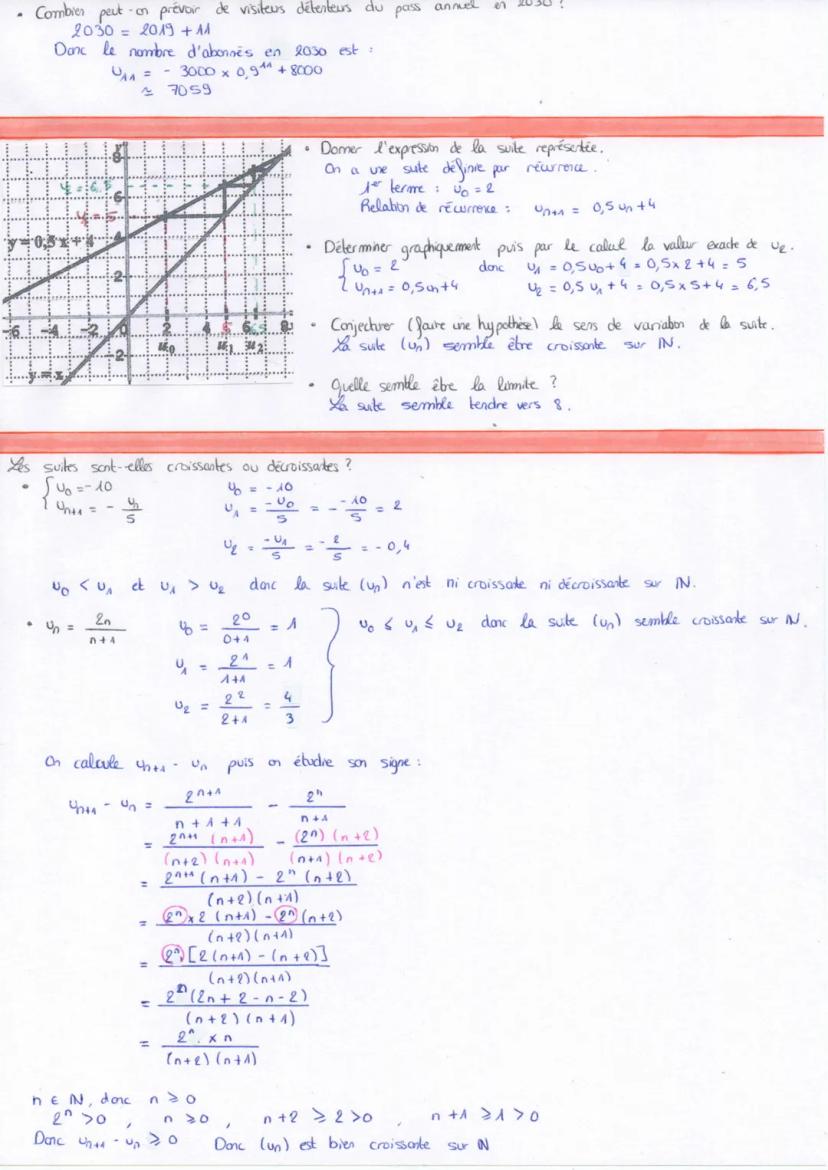 • Combien peut-on prévoir de visiteurs détenteurs du pass annuel en 2030 ?
2030 = 2019 + 11
Donc le nombre d'abonnés en 2030 est :
U₁₁ = - 3000 × 0,9¹¹ + 8000
≃ 7059
• Donner l'expression de la suite représentée.
On a une suite définie par récurrence.
1er terme : u₀ = 2
Relation de récurrence : uₙ₊₁ = 0,5 uₙ + 4
• Déterminer graphiquement puis par le calcul la valeur exacte de u₂.
{ u₀ = 2 donc u₁ = 0,5u₀ + 4 = 0,5 × 2 + 4 = 5
{ uₙ₊₁ = 0,5uₙ + 4 u₂ = 0,5 u₁ + 4 = 0,5 × 5 + 4 = 6,5
• Conjecturer (faire une hypothèse) le sens de variation de la suite.
La suite (uₙ) semble être croissante sur ℕ.
• Quelle semble être la limite ?
La suite semble tendre vers 8.
y
8
y = 6,5
6
y = 5
4
y = 0,5x + 4
2
-6 -4 -2 0 2 4 6 5 6,5 8
u₀ u₁ u₂
-2
y = x
Les suites sont-elles croissantes ou décroissantes ?
• { u₀ = -10 u₀ = -10
{ uₙ₊₁ = - uₙ/5 u₁ = -u₀/5 = - -10/5 = 2
u₂ = -u₁/5 = - 2/5 = - 0,4
u₀ < u₁ et u₁ > u₂ donc la suite (uₙ) n'est ni croissante ni décroissante sur ℕ.
• uₙ = 2n/(n+1) u₀ = 2⁰/(0+1) = 1 } u₀ ≤ u₁ ≤ u₂ donc la suite (uₙ) semble croissante sur ℕ.
u₁ = 2¹/(1+1) = 1
u₂ = 2²/(2+1) = 4/3
On calcule uₙ₊₁ - uₙ puis on étudie son signe :
uₙ₊₁ - uₙ = 2ⁿ⁺¹/(n + 1 + 1) - 2ⁿ/(n+1)
= 2ⁿ⁺¹ (n+1)/((n+2)(n+1)) - (2ⁿ)(n+2)/((n+1)(n+2))
= (2ⁿ⁺¹ (n+1) - 2ⁿ (n+2))/((n+2)(n+1))
= (2ⁿ × 2 (n+1) - 2ⁿ (n+2))/((n+2)(n+1))
= 2ⁿ [2(n+1) - (n+2)]/((n+2)(n+1))
= 2ⁿ (2n + 2 - n - 2)/((n+2)(n+1))
= 2ⁿ × n/((n+2)(n+1))
n ∈ ℕ, donc n ≥ 0
2ⁿ > 0 , n ≥ 0 , n + 2 ≥ 2 > 0 , n + 1 ≥ 1 > 0
Donc uₙ₊₁ - uₙ ≥ 0 Donc (uₙ) est bien croissante sur ℕ